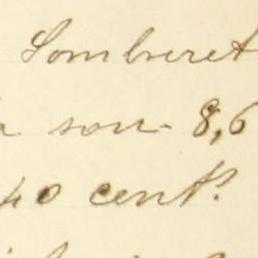 Sombreret
son- 8,6
40 cent?